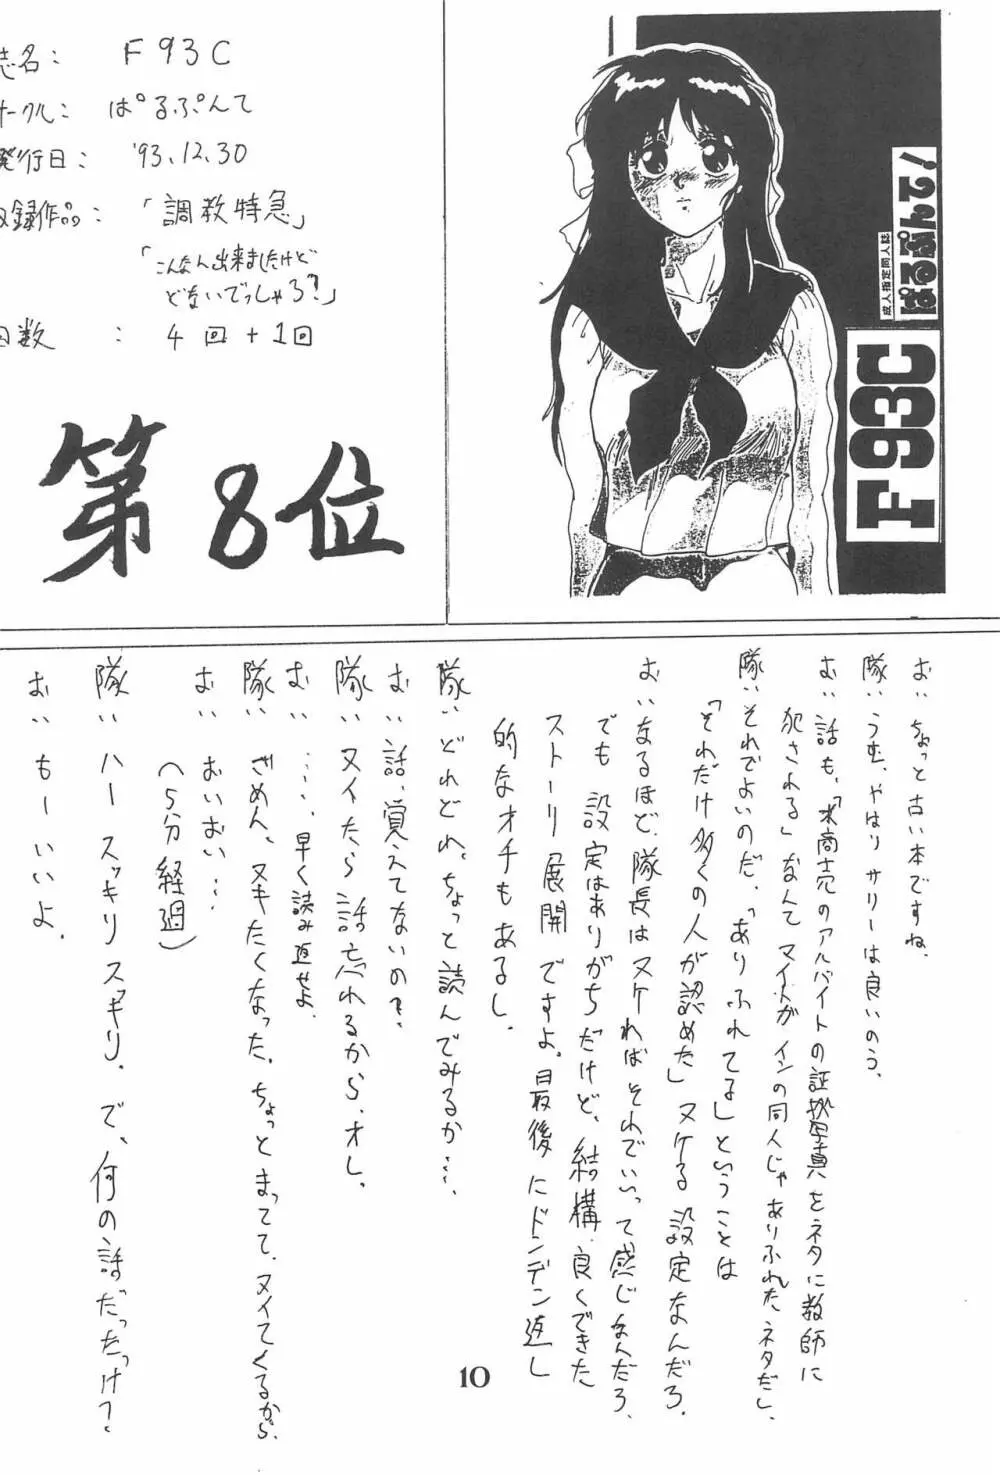 誌名: F93C
サークル: ぱるぷんて
発行日: '93.12.30
収録作品: 「調教特急」
「こんなん出来ましたけど
どないでっしゃろ?」
回数: 4回+1回
第8位
成人指定同人誌
ぱるぷんて!
F93C
お:ちょっと古い本ですね.
隊:うむ、やはりサリーは良いのう.
お:話も、「水商売のアルバイトの証拠写真をネタに教師に
犯される」なんてマイナインの同人じゃありふれたネタだし.
隊:それでよいのだ.「ありふれてる」ということは
「それだけ多くの人が認めた」ヌケる設定なんだろ.
お:なるほど、隊長はヌケればそれでいいって感じなんだろ.
でも設定はありがちだけど、結構良くできた
ストーリ展開ですよ.最後にドンデン返し
的なオチもあるし.
隊:どれどれ、ちょっと読んでみるか….
お:話、覚えてないの?
隊:ヌイたら話忘れるから、オレ.
お:….早く読み返せよ.
隊:ごめん、ヌキたくなった.ちょっとまってて.ヌイてくるから.
お:おいおい…
(5分経過)
隊:ハースッキリスッキリ.で、何の話だったっけ?
お:もーいいよ.
10